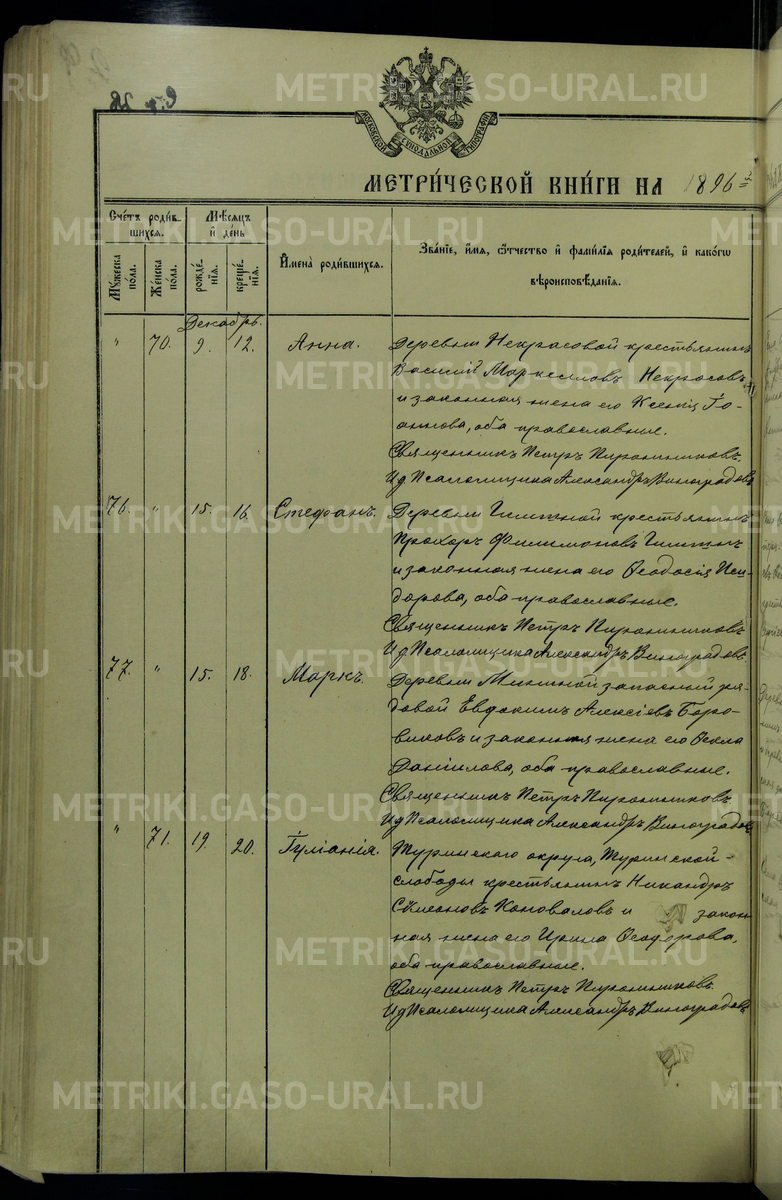 МЕТРИ́ЧЕСКОЙ КНИ́ГИ НА 1896 г.
Сче́тъ роди́в-
шихся.
Му́жеска по́ла.
Же́нска по́ла.
Мѣ́сяцъ и́ де́нь
рожде́-нїя.
креще́-нїя.
И҆мена̀ роди́вшихся.
Зва́нїе, и҆́мя, ѻ҆́тчество и҆ фами́лїя роди́телей, и҆ како́гѡ
вѣроисповѣ́данїя.
Декабрь.
" 70. 9. 12. Анна. Деревни Некрасовой крестьянинъ
Василій Маркелловъ Некрасовъ
и законная жена его Ксенія Іо-
аннова, оба православные.
Священникъ Петръ
И д Псаломщика Александръ Виноградовъ
76. " 15. 16. Стефанъ. Деревни крестьянинъ
Прохоръ Филимоновъ
и законная жена его Ѳеодосія Иси-
дорова, оба православные.
Священникъ Петръ
И д Псаломщика Александръ Виноградовъ
77. " 15. 18. Маркъ. Деревни запасный ря-
довой Евдокимъ Алексіевъ Боро-
виковъ и законная жена его Ѳекла
Даніилова, оба православные.
Священникъ Петръ
И д Псаломщика Александръ Виноградовъ
" 71. 19. 20. Іуліанія. Туринскаго округа, Туринской
слободы крестьянинъ Никандръ
Сѵмеоновъ Коноваловъ и закон-
ная жена его Ирина Ѳеодорова,
оба православные.
Священникъ Петръ
И д Псаломщика Александръ Виноградовъ
METRIKI.GASO-URAL.RU